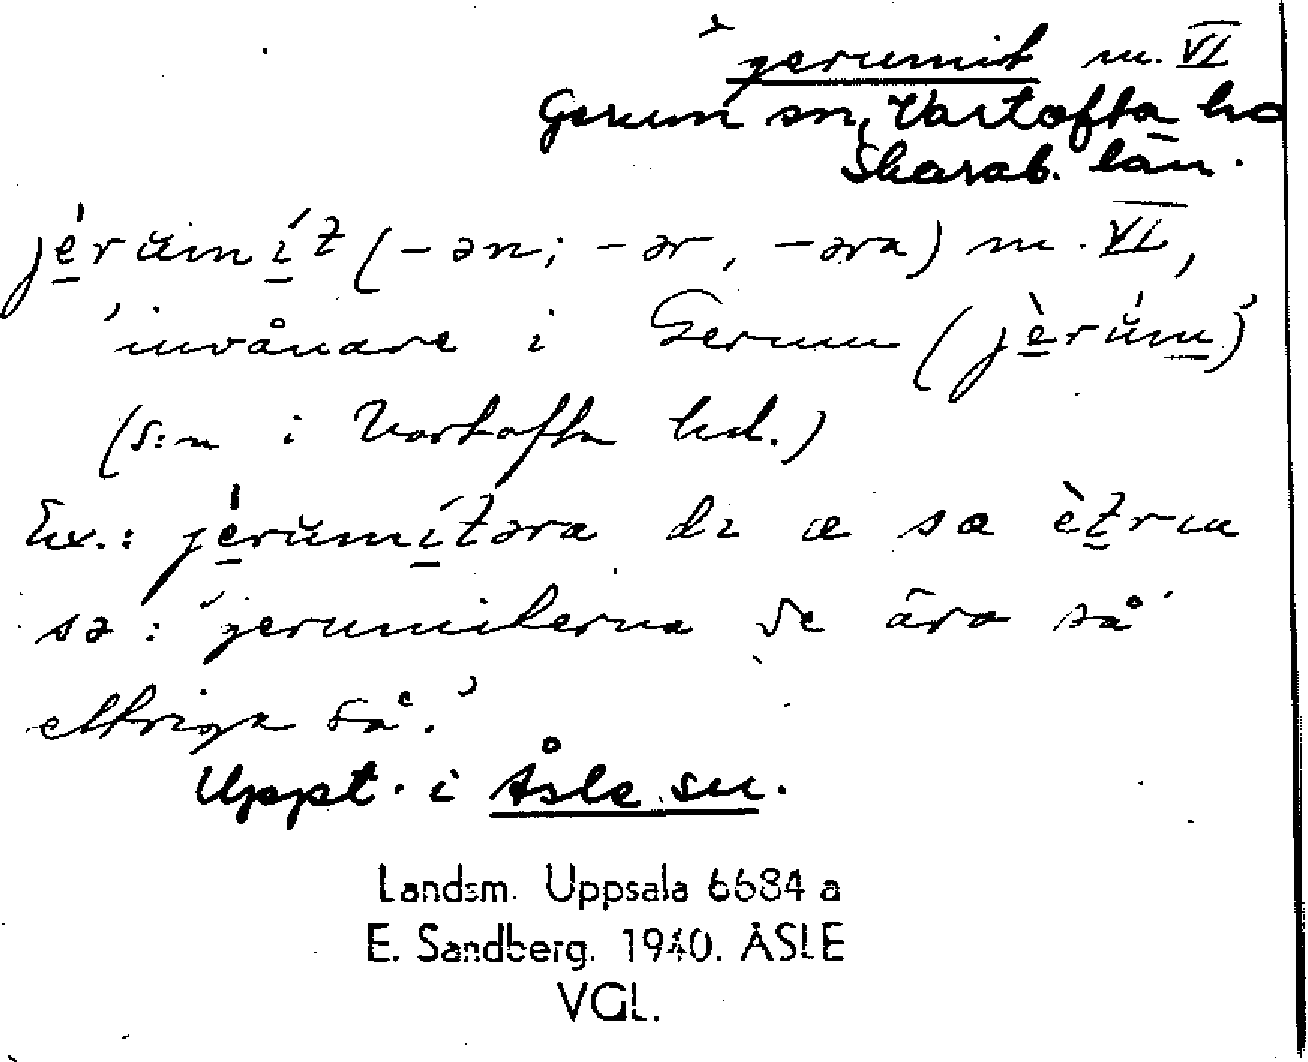 gerumit m. VI
Gerum sn, Vartofta hd
Skarab. län.
jérŭmít (-ən; -ər, -əra) m. VI,
'invånare i Gerum (jèrŭm)'
(s:n i Vartofta hd.)
Ex.: jérŭmítəra di æ sæ ètrıa
sə: 'gerumiterna de äro så
ettriga så.'
Uppt. i Åsle sn.
Landsm. Uppsala 6684 a
E. Sandberg. 1940. ÅSLE
VGL.